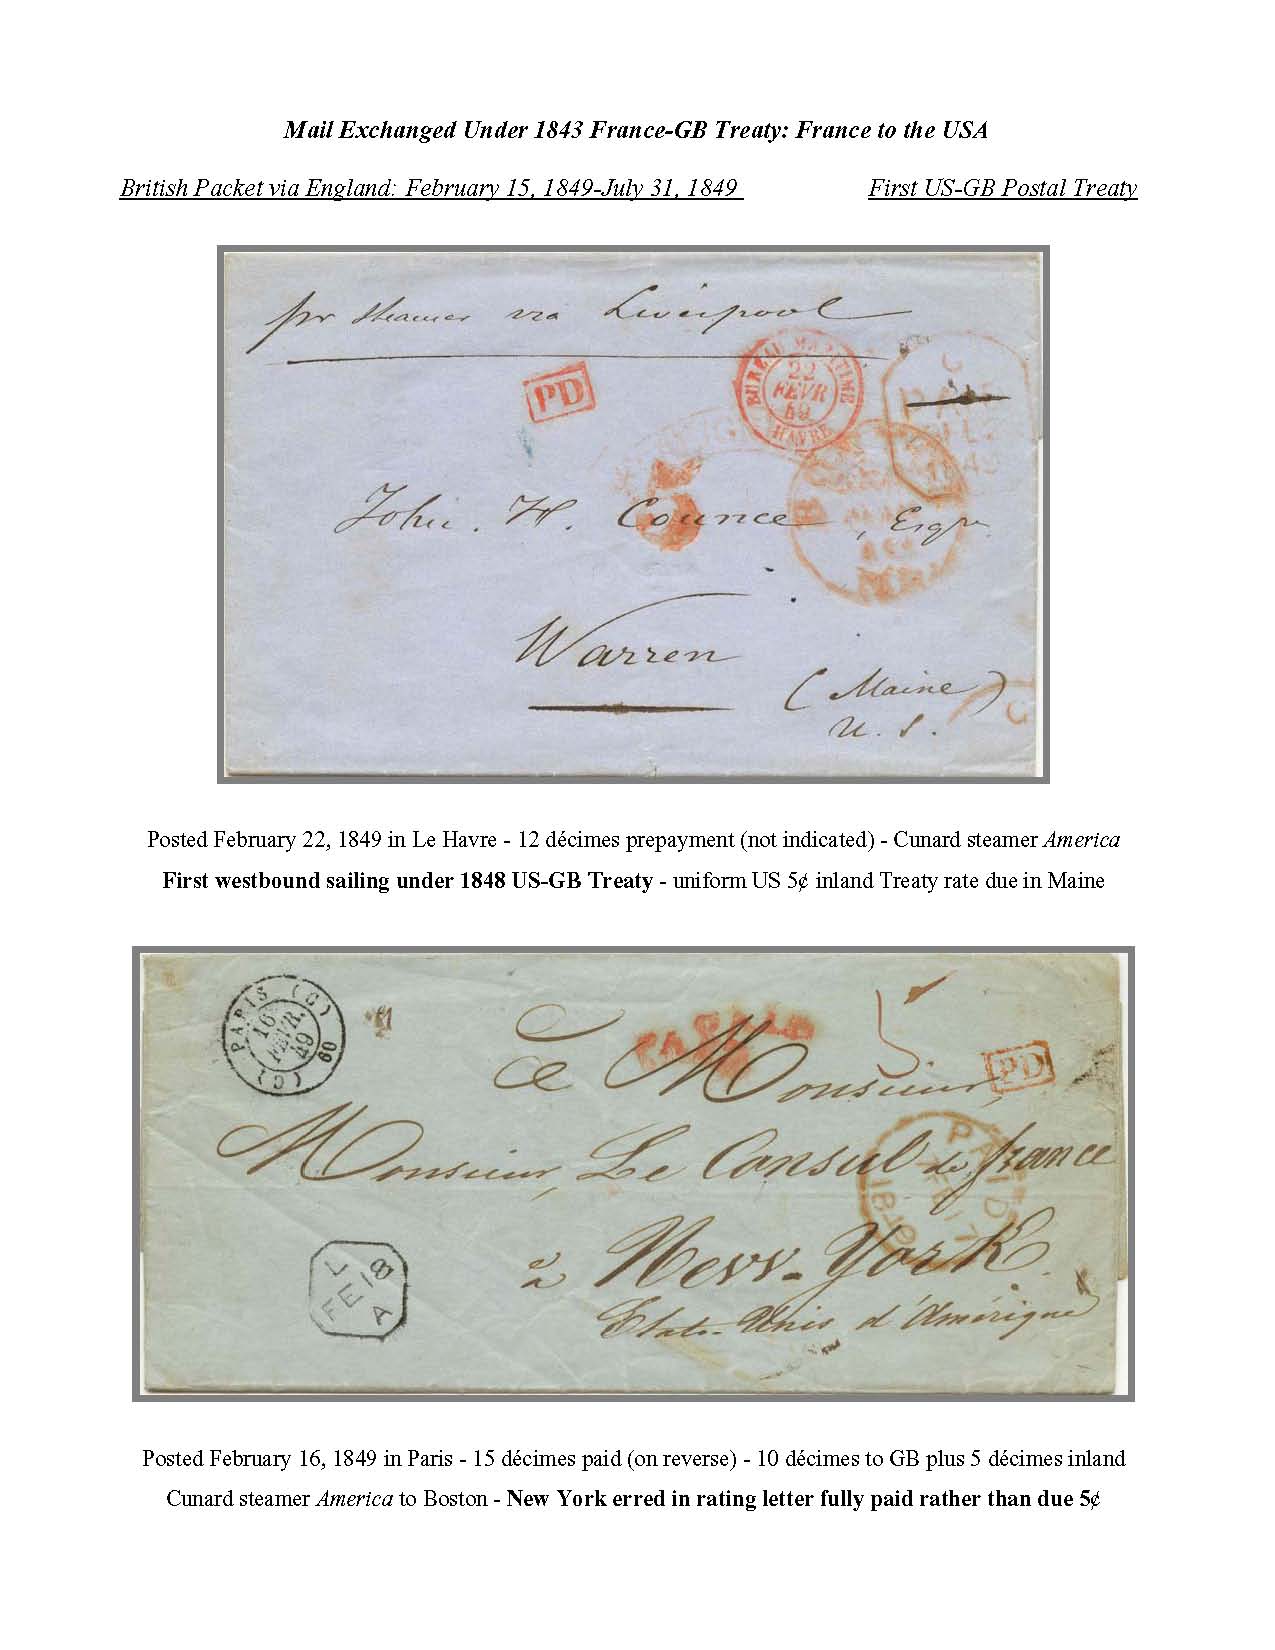 Mail Exchanged Under 1843 France-GB Treaty: France to the USA
British Packet via England: February 15, 1849-July 31, 1849 First US-GB Postal Treaty
pr steamer via Liverpool
BUREAU MARITIME
22
FEVR
49
HAVRE
PD
5
John. H. Counce, Esqre
Warren
(Maine)
U. S.
Posted February 22, 1849 in Le Havre - 12 décimes prepayment (not indicated) - Cunard steamer America
First westbound sailing under 1848 US-GB Treaty - uniform US 5¢ inland Treaty rate due in Maine
PARIS (C)
16
FEVR.
49
(C)
60
PD
à Monsieur,
Monsieur, Le Consul de france
PAID
17
1849
à New-York.
États-Unis d'Amérique
L
FE18
A
Posted February 16, 1849 in Paris - 15 décimes paid (on reverse) - 10 décimes to GB plus 5 décimes inland
Cunard steamer America to Boston - New York erred in rating letter fully paid rather than due 5¢